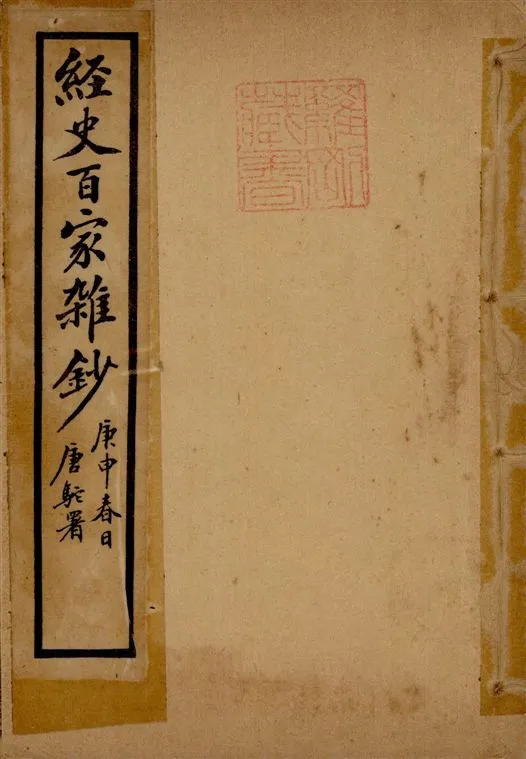 経史百家雜鈔
庚申春日
唐駝署